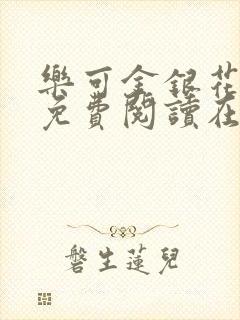 樂可金銀花
免費閱讀在
磐生蓮兒